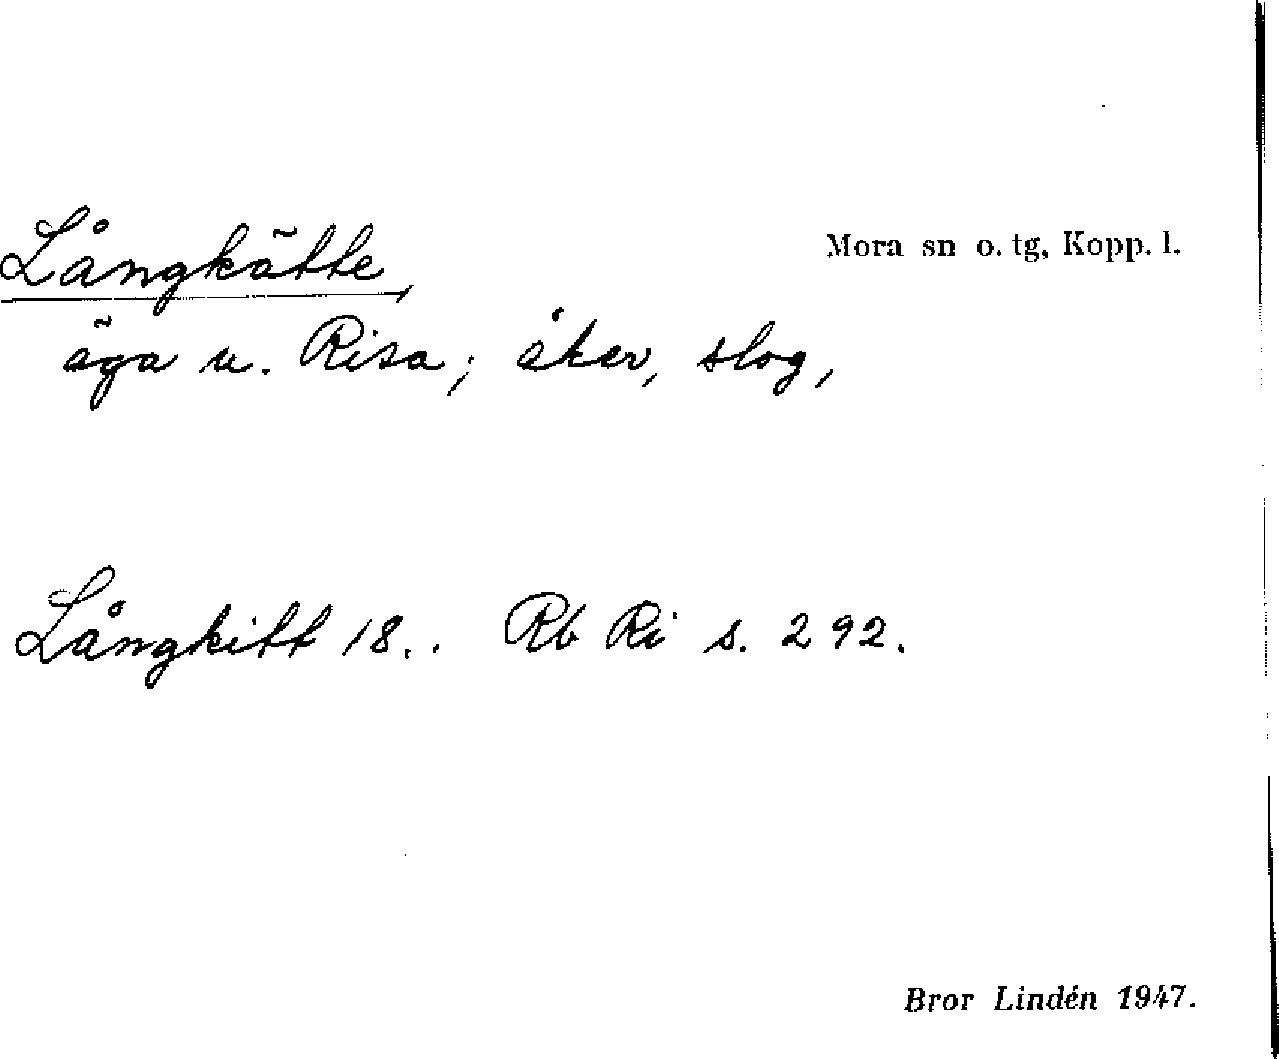 Långkätte,
Mora sn o. tg, Kopp. l.
äga u. Risa; åker, slog,
Långkitt 18.. Rb Ri s. 292.
Bror Lindén 1947.